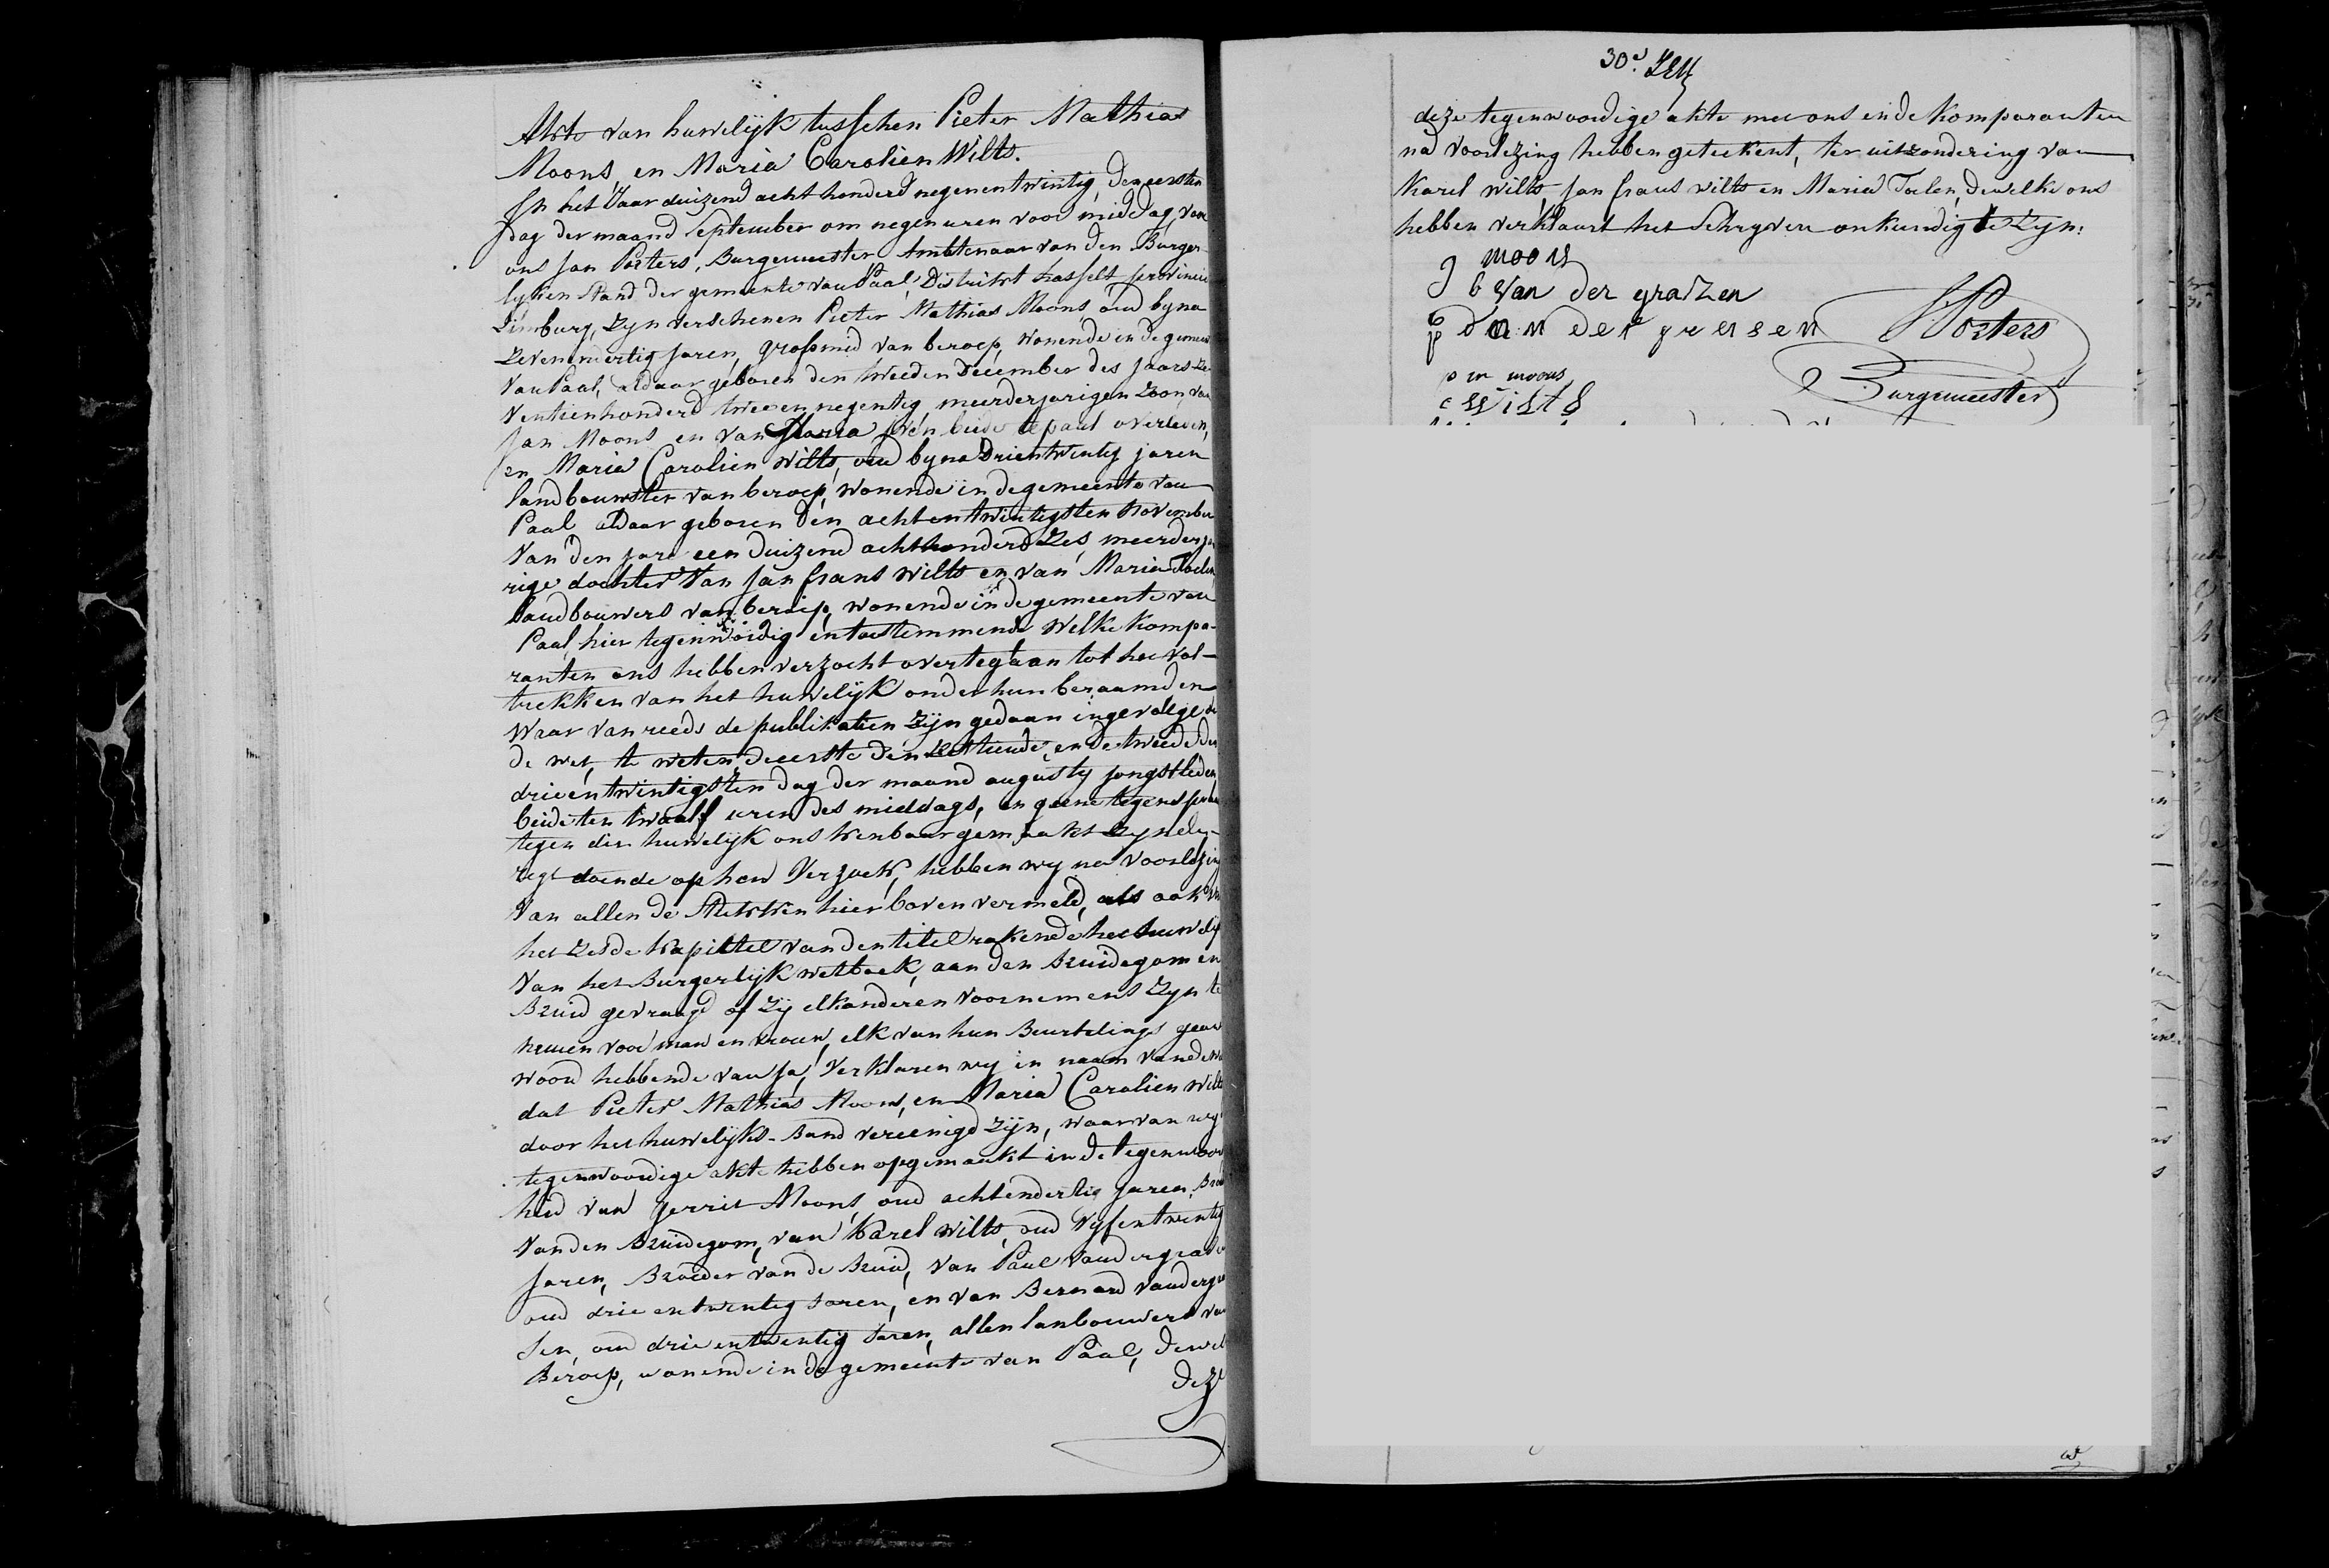 Akte van huwelijk tusschen Pieter Mathias
Moons, en Maria Carolien Wilts.
In het Jaar duizend acht honderd negenentwintig, den eersten
dag der maand September om negen uren voor middag, voor
ons Jan Porters, Burgemeester Ambtenaar van den Burger-
lyken Stand der gemeente van Paal, District Hasselt provincie
Limburg, zyn verschenen Pieter Mathias Moons oud byna
zevenendertig jaren, grofsmid van beroep, wonende in de gemeente
van Paal, aldaar geboren den tweeden December des jaars ze-
ventienhonderd tweeennegentig, meerderjarigen zoon, van
Jan Moons en van Maria beide te paal overleden,
en Maria Carolien Wilts, oud byna drieentwintig jaren
landbouwster van beroep, wonende in de gemeente van
Paal aldaar geboren den achtentwintigsten November
van den jare een duizend achthonderd zes, meerderja
rige dochter van Jan frans Wilts en van Maria Toelen
landbouwers van beroep, wonende in de gemeente van
Paal, hier tegenwoordig en toestemmende welke kompa-
ranten ons hebben verzocht overtegaan tot het vol-
trekken van het huwelijk onder hun beraamd en
waar van reeds de publikatien zijn gedaan ingevolge de
de wet, te weten, de eerste den zestiende, en de tweede den
drieentwintigsten dag der maand augusty jongstleden
beide ten twaalf uren des middags, en geene tegenspraak
tegen dit huwelijk ons kenbaar gemaakt zynde,
regt doende op hun verzoek, hebben wy na voorlezing
van allen de Stukken hier boven vermeld, als ook van
het zesde kapittel van den titel rakende het huwelijk
van het Burgerlijk wetboek, aan den Bruidegom en
Bruid gevraagd of zij elkanderen voornemens zyn te
nemen voor man en vrouw, elk van hun Beurtelings geant
woord hebbende van Ja, Verklaren wy in naam van de wet
dat Pieter Mathias Moons, en Maria Carolien Wilts
door het huwelijks-band vereenigd zijn, waarvan wy
tegenwoordige akte hebben opgemaakt in de tegenwoor
heid van Gerrit Moons, oud achtendertig jaren, Broeder
van den Bruidegom, van Karel Wilts, oud vyfentwintig
jaren, Broeder van de Bruid, van Paul Vandergraesen
oud drie entwintig Jaren, en van Bernard Vandergrae
sen, oud drieentwentig Jaren, allen lanbouwers van
Beroep, wonende in de gemeente van Paal, dewel
deze
30e
deze tegenwoordige akte met ons en de komparanten
na voorlezing hebben geteekent, ter uitzondering van
Karel Wilts, Jan frans wilts en Maria Toelen, dewelke ons
hebben verklaart het Schryven onkundig te zyn.
g moons
J b van der grazen
p van der gresen Porters
p m moons
c wilts
Burgemeester